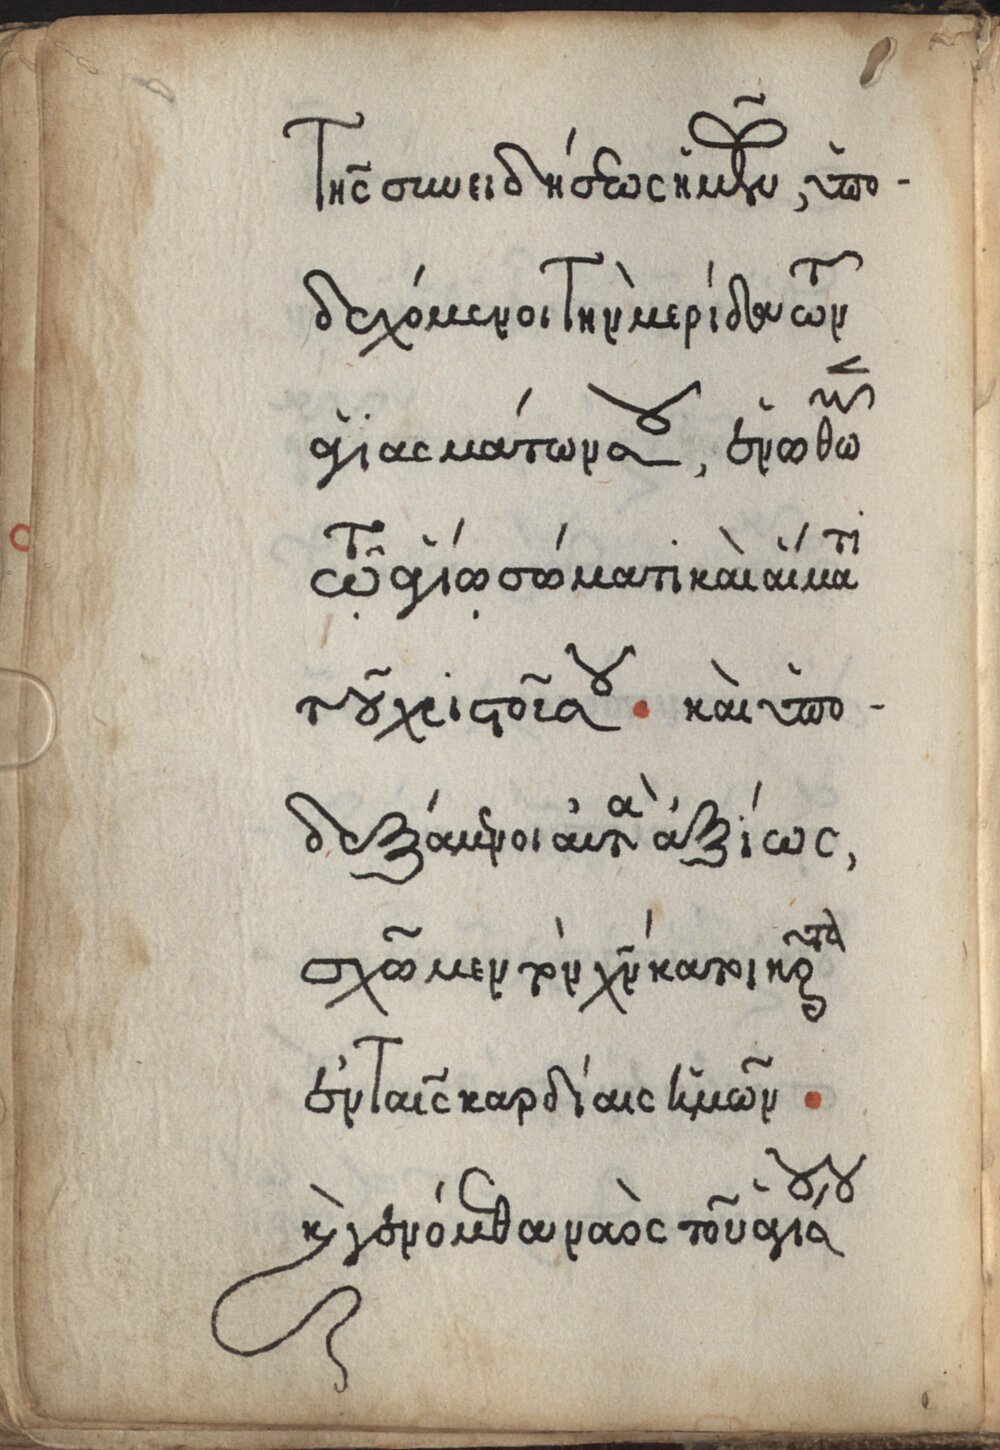 Τῆς συνειδήσεως ἡμῶν, ὑπο-
δεχόμενοι τὴν μερίδα τῶν
ἁγιασμάτων σου, ἑνωθῶμεν
τῷ ἁγίῳ σώματι καὶ αἵματι
τοῦ χριστοῦ σου. καὶ ὑπο-
δεξάμενοι αὐτὰ ἀξίως,
σχῶμεν τὸν χν κατοικοῦντα
ἐν ταῖς καρδίαις ἡμῶν.
καὶ γενόμεθα ναὸς τοῦ ἁγίου σου